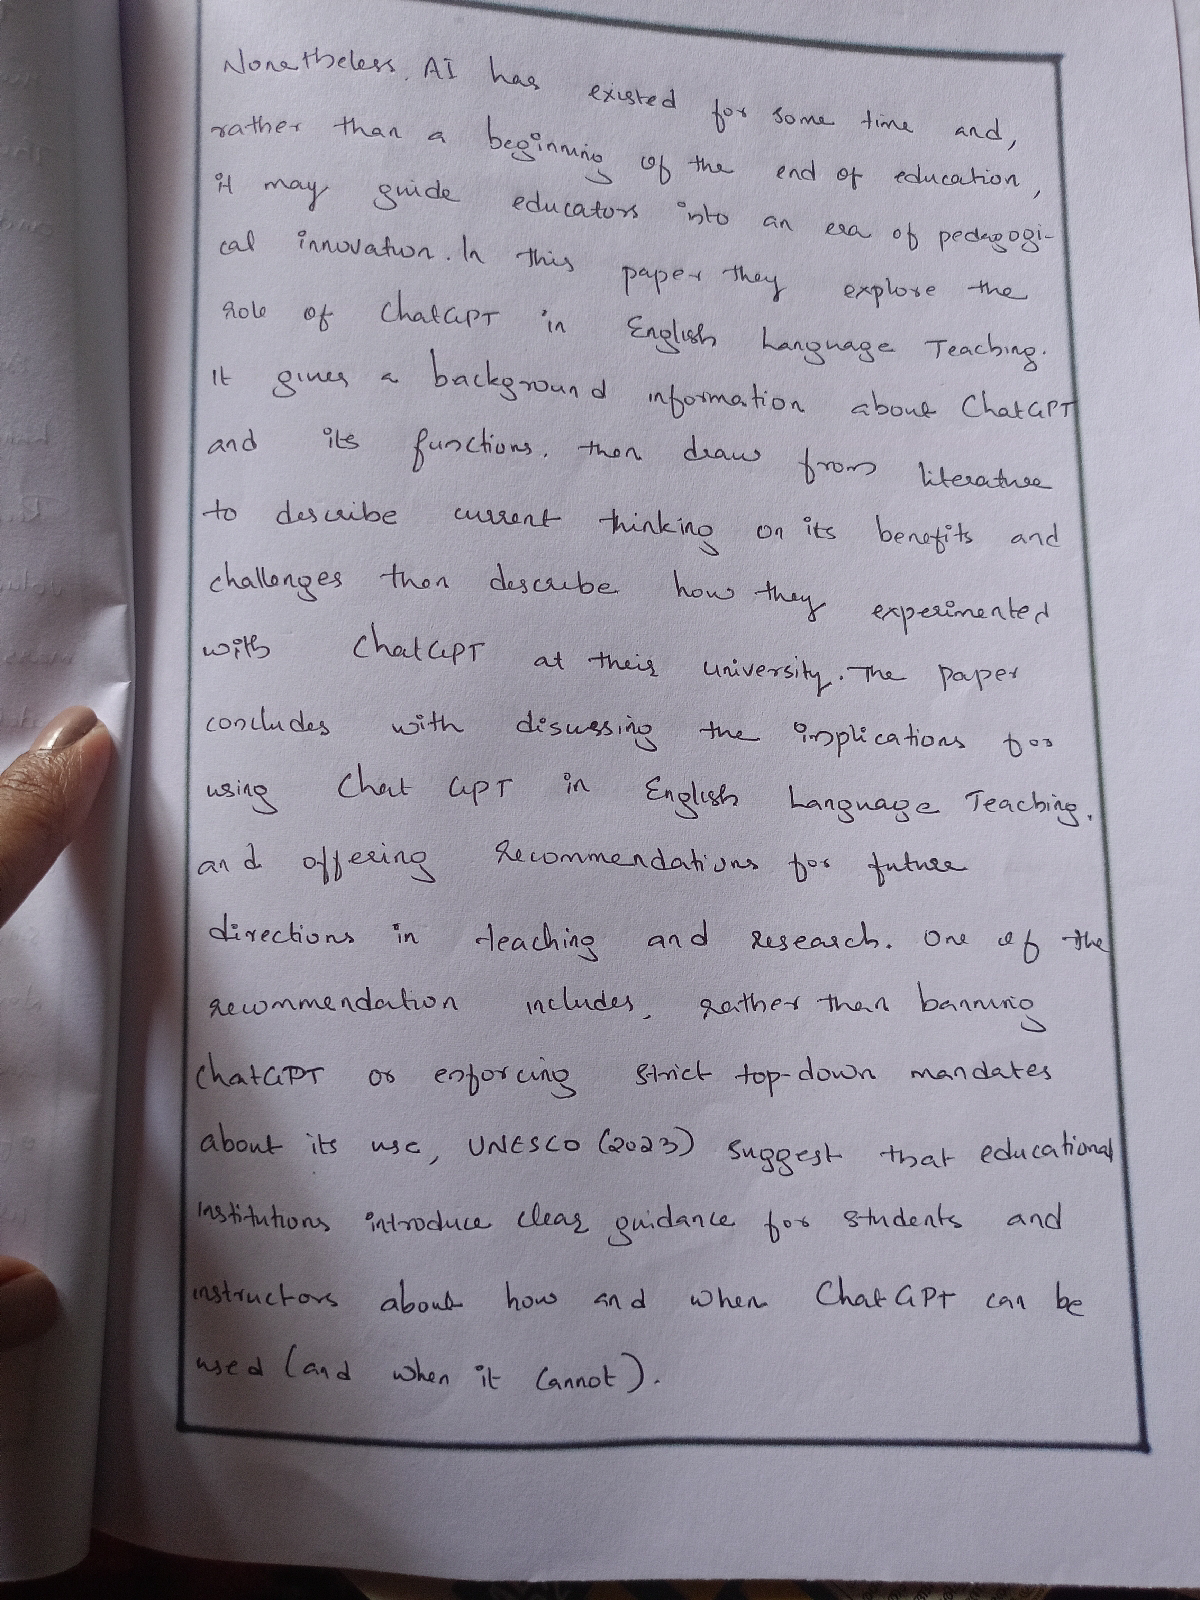 Nonetheless, AI has existed for some time and,
rather than a beginning of the end of education,
it may guide educators into an era of pedagogi-
cal innovation. In this paper they explore the
role of ChatGPT in English Language Teaching.
It gives a background information about ChatGPT
and its functions. then draw from literature
to describe current thinking on its benefits and
challenges then describe how they experimented
with ChatGPT at their university. The paper
concludes with discussing the implications for
using Chat GPT in English Language Teaching.
and offering recommendations for future
directions in teaching and research. One of the
recommendation includes, rather than banning
ChatGPT or enforcing strict top-down mandates
about its use, UNESCO (2023) suggest that educational
institutions introduce clear guidance for students and
instructors about how and when ChatGPT can be
used (and when it cannot).